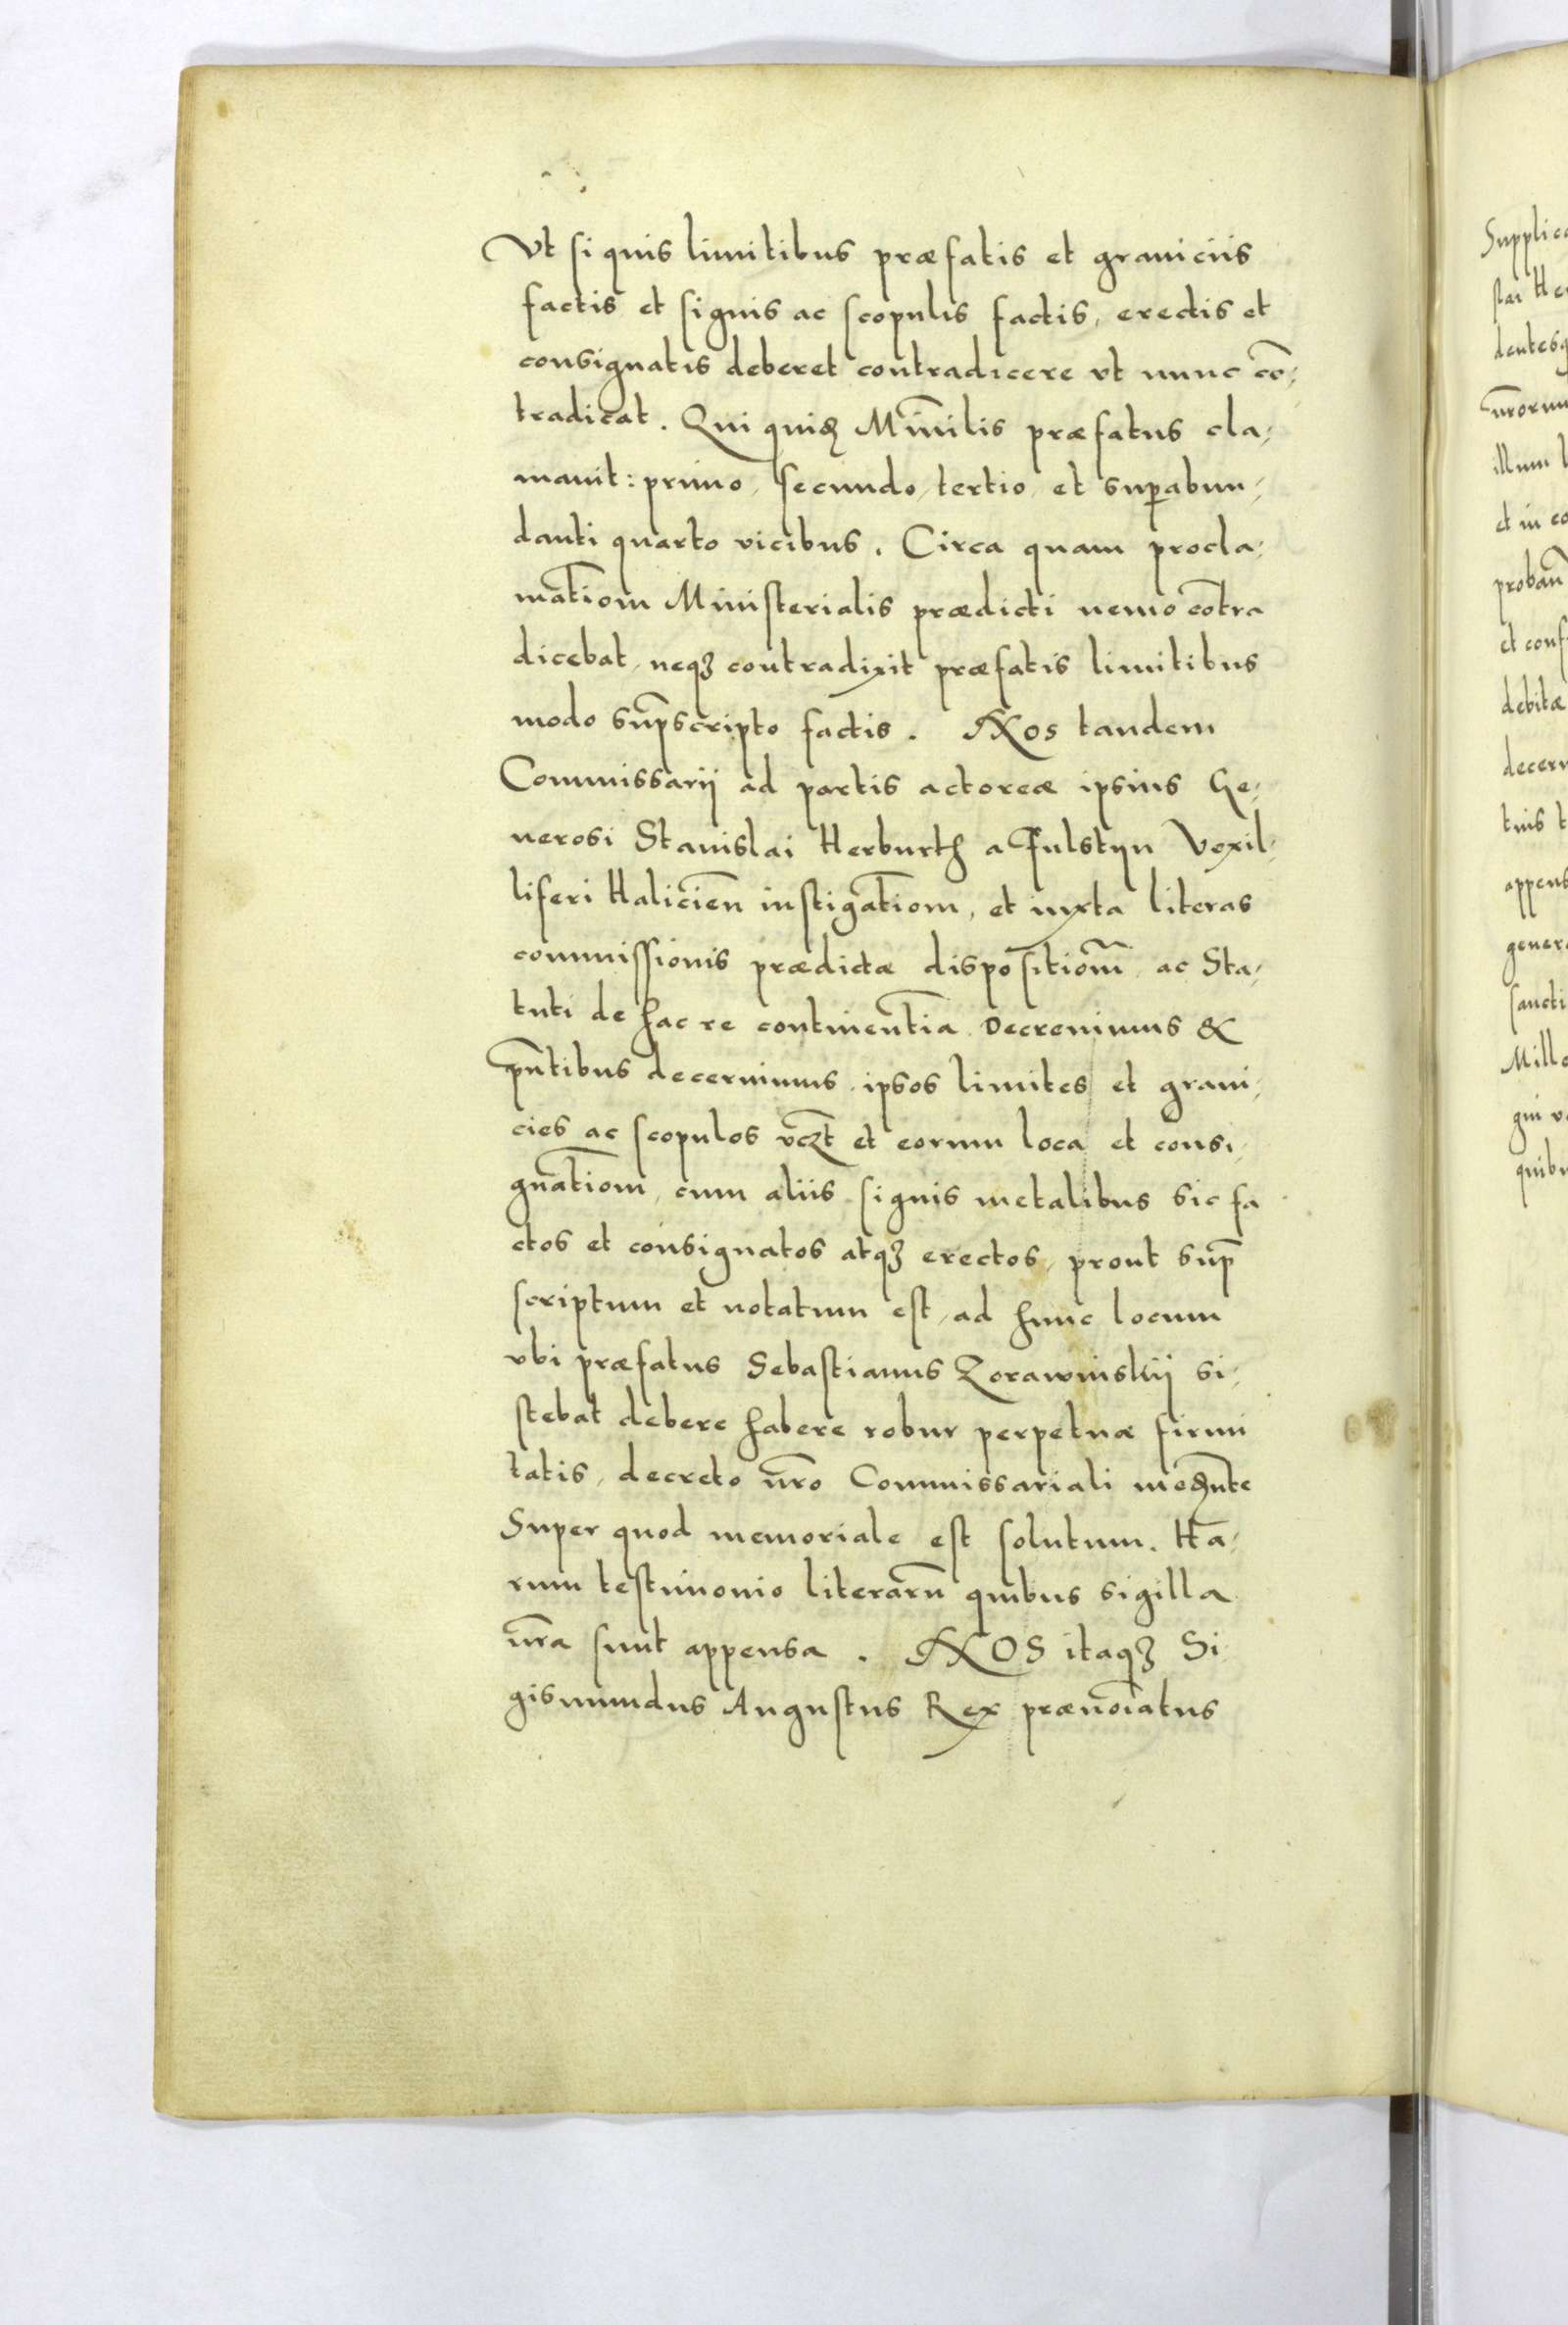 Vt si quis limitibus præfatis et graniciis
factis et signis ac scopulis factis, erectis et
consignatis deberet contradicere vt nunc cō-
tradicat. Qui quiꝫ Mīnilis præfatus cla-
mauit: primo, secundo, tertio, et suꝑabun-
danti quarto vicibus. Circa quam procla-
matīom Ministerialis prædicti nemo cōtra
dicebat, neqꝫ contradixit præfatis limitibus
modo sup̄scripto factis. NOS tandem
Commissarij ad partis actoreæ ipsius Ge-
nerosi Stanislai Herburth a Fulstijn Vexil-
liferi Halicień instigatīom, et iuxta literas
commissionis prædictæ dispositiom̄ ac Sta-
tuti de hac re continentīa Decreuimus &
pn̄tibus decernimus ipsos limites et grani-
cies ac scopulos vcꝫt et eorum loca et consi-
gnatīom, cum aliis signis metalibus sic fa
ctos et consignatos atqꝫ erectos, prout sup̄
scriptum et notatum est, ad hunc locum
vbi præfatus Sebastianus Zorawinskij si-
stebat debere habere robur perpetuæ firmi
tatis, decreto nr̄o Commissariali medn̄te
Super quod memoriale est solutum. Ha-
rum testimonio literarū quibus sigilla
nr̄a sunt appensa. NOS itaqꝫ Si
gismundus Augustus Rex prænoīatus
Supplica
star He
dentesq
nr̄orum
illum l
et in co
proban̄
et conf
debitæ
decern
tuis t
appens
genera
sancti
Mille
gni v
quibu